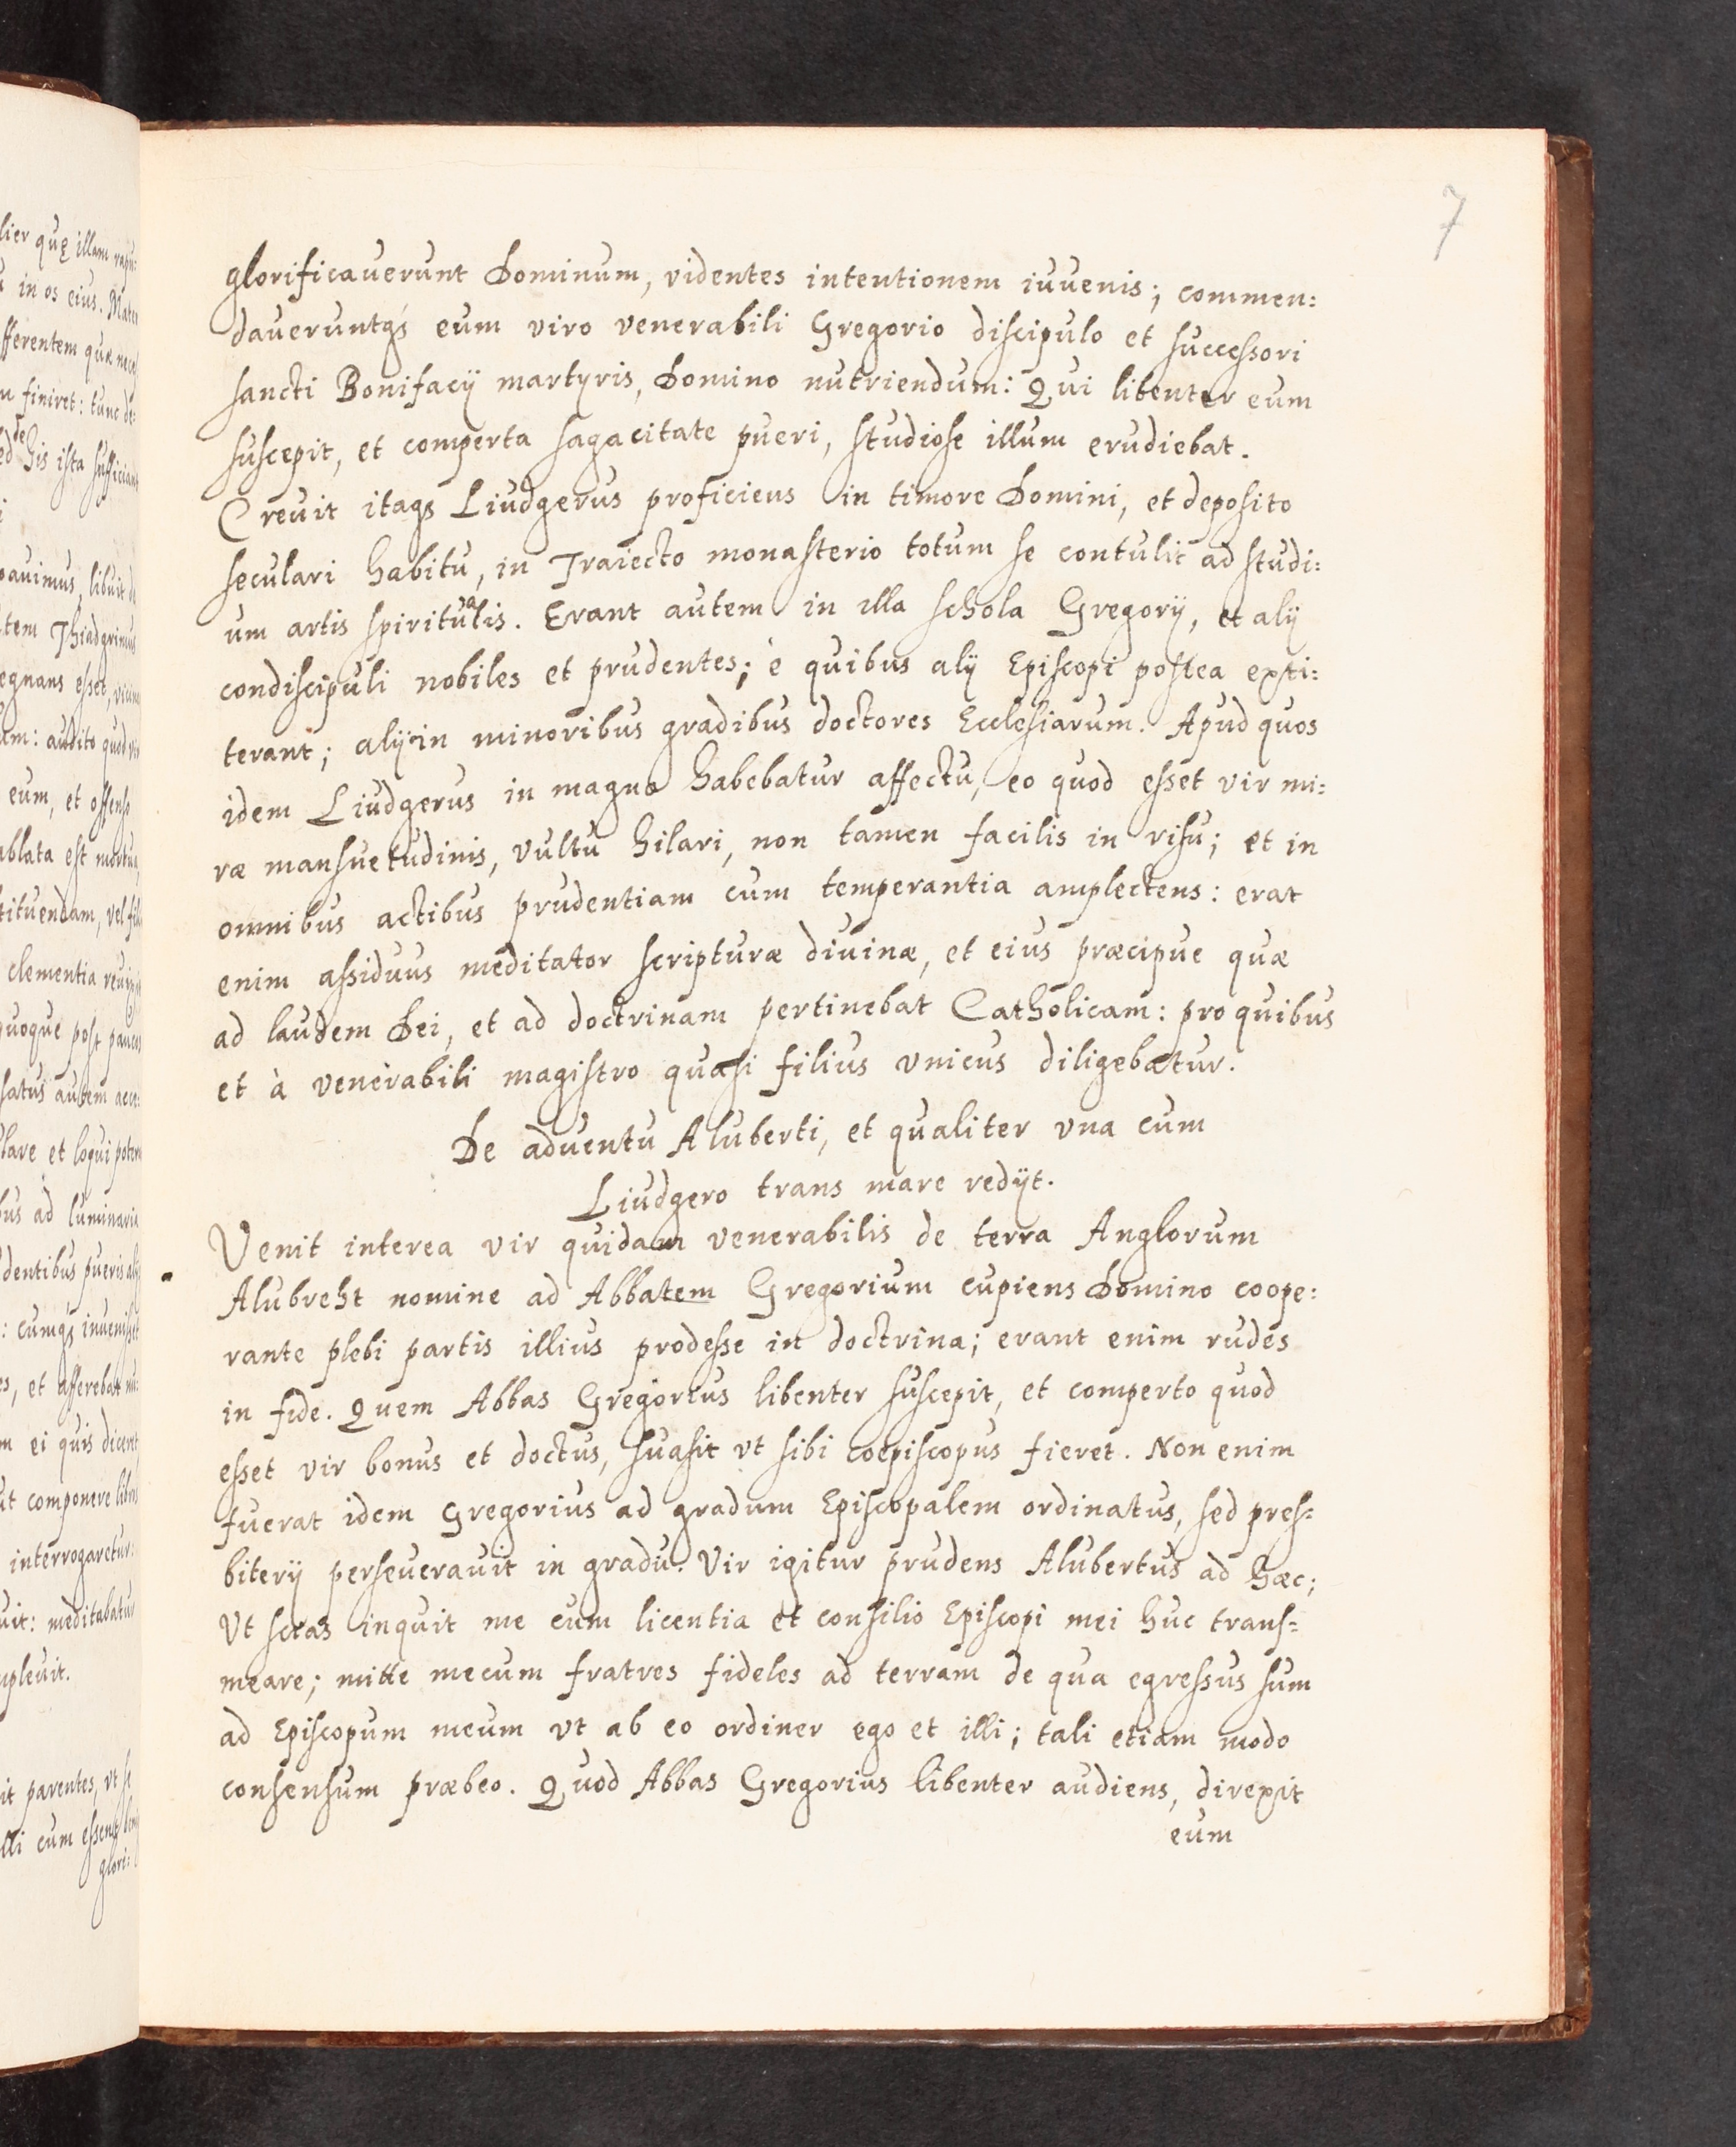 7
glorificauerunt Dominum, videntes intentionem iuuenis; commen:
daueruntqs eum viro venerabili Gregorio discipulo et successori
sancti Bonifacÿ martyris, Domino nutriendum: Qui libenter eum
suscepit, et comperta sagacitate pueri, studiose illum erudiebat.
Creuit itaqs Liudgerus proficiens in timore Domini, et deposito
seculari habitu, in Traiecto monasterio totum se contulit ad studi:
um artis spiritualis. Erant autem in illa schola Gregorÿ, et alÿ
condiscipuli nobiles et prudentes; è quibus alÿ Episcopi postea exti:
terant; alÿ in minoribus gradibus doctores Ecclesiarum. Apud quos
idem Liudgerus in magno habebatur affectu, eo quod esset vir mi:
ræ mansuetudinis, vultu hilari, non tamen facilis in risu; et in
omnibus actibus prudentiam cum temperantia amplectens: erat
enim assiduus meditator scripturæ diuinæ, et eius præcipue quæ
ad laudem Dei, et ad doctrinam pertinebat Catholicam: pro quibus
et à venerabili magistro quasi filius vnicus diligebatur.
De aduentu Aluberti, et qualiter vna cum
Liudgero trans mare redÿt.
Venit interea vir quidam venerabilis de terra Anglorum
Alubreht nomine ad Abbatem Gregorium cupiens Domino coope:
rante plebi partis illius prodesse in doctrina; erant enim rudes
in fide. Quem Abbas Gregorius libenter suscepit, et comperto quod
esset vir bonus et doctus, suasit vt sibi coepiscopus fieret. Non enim
fuerat idem Gregorius ad gradum Episcopalem ordinatus, sed pres=
biterÿ perseuerauit in gradu. Vir igitur prudens Alubertus ad hæc;
Vt scias inquit me cum licentia et consilio Episcopi mei huc trans=
meare; mitte mecum fratres fideles ad terram de qua egressus sum
ad Episcopum meum vt ab eo ordiner ego et illi; tali etiam modo
consensum præbeo. Quod Abbas Gregorius libenter audiens, direxit
eum